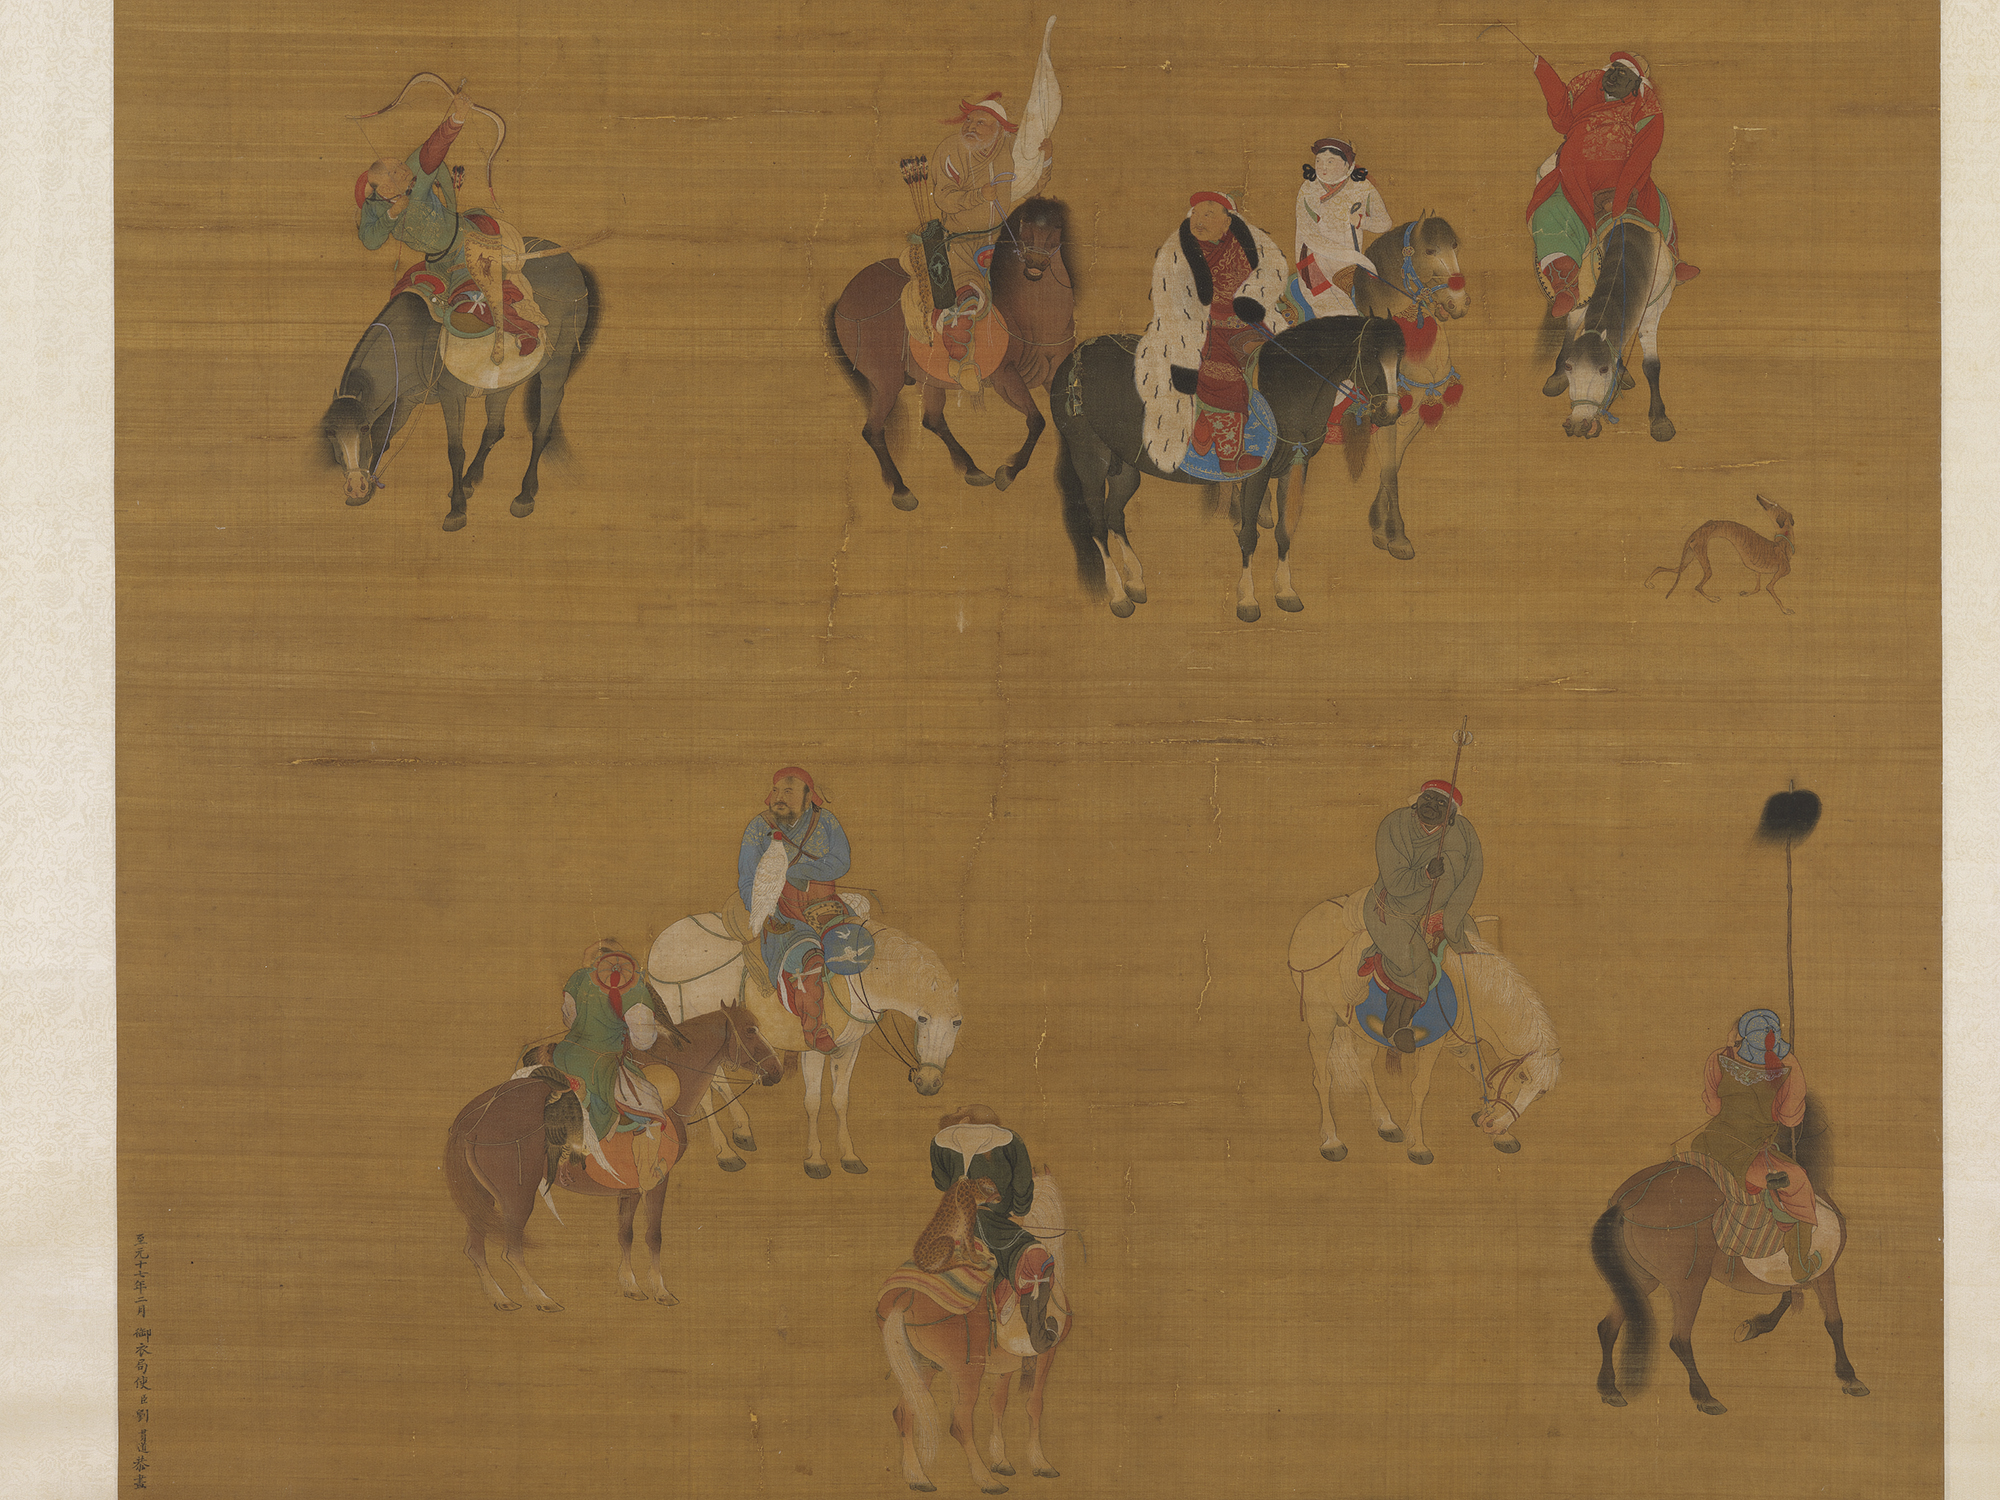 至元十七年二月 御衣局使臣劉貫道恭畫